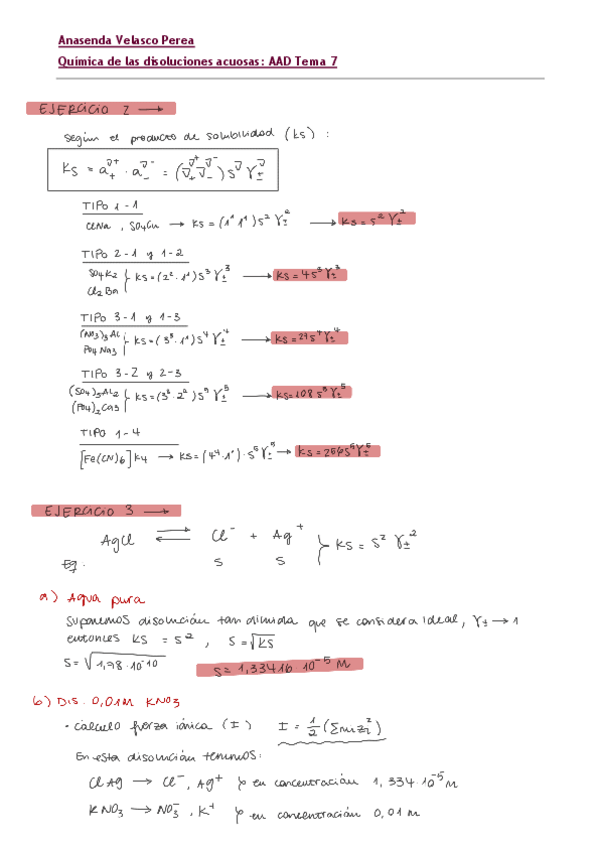 Anasenda Velasco Perea
Química de las disoluciones acuosas: AAD Tema 7
EJERCICIO 2 →
Según el producto de solubilidad (Ks) :
Ks = a₊^ν⁺ · a₋^ν⁻ = (ν₊^ν⁺ ν₋^ν⁻) s^ν γ±^ν
TIPO 1-1
ClNa , SO₄Cu → Ks = (1¹ 1¹) s² γ±² → Ks = s² γ±²
TIPO 2-1 y 1-2
SO₄K₂
Cl₂Ba } Ks = (2² · 1¹) s³ γ±³ → Ks = 4s³ γ±³
TIPO 3-1 y 1-3
(NO₃)₃Al
PO₄Na₃ } Ks = (3³ · 1¹) s⁴ γ±⁴ → Ks = 27s⁴ γ±⁴
TIPO 3-2 y 2-3
(SO₄)₃Al₂
(PO₄)₂Ca₃ } Ks = (3³ · 2²) s⁵ γ±⁵ → Ks = 108 s⁵ γ±⁵
TIPO 1-4
[Fe(CN)₆]K₄ → Ks = (4⁴ · 1¹) · s⁵ γ±⁵ → Ks = 256s⁵ γ±⁵
EJERCICIO 3 →
AgCl ⇌ Cl⁻ + Ag⁺ } Ks = s² γ±²
Eq. s s
a) Agua pura
Suponemos disolución tan diluida que se considera ideal, γ± → 1
entonces Ks = s² , s = √Ks
s = √1,78 · 10⁻¹⁰ s = 1,33416 · 10⁻⁵ M
b) DIS. 0,01M KNO₃
• cálculo fuerza iónica (I) I = 1/2 (Σmᵢzᵢ²)
En esta disolución tenemos:
ClAg → Cl⁻, Ag⁺ } en concentración 1,334·10⁻⁵ M
KNO₃ → NO₃⁻, K⁺ } en concentración 0,01 M